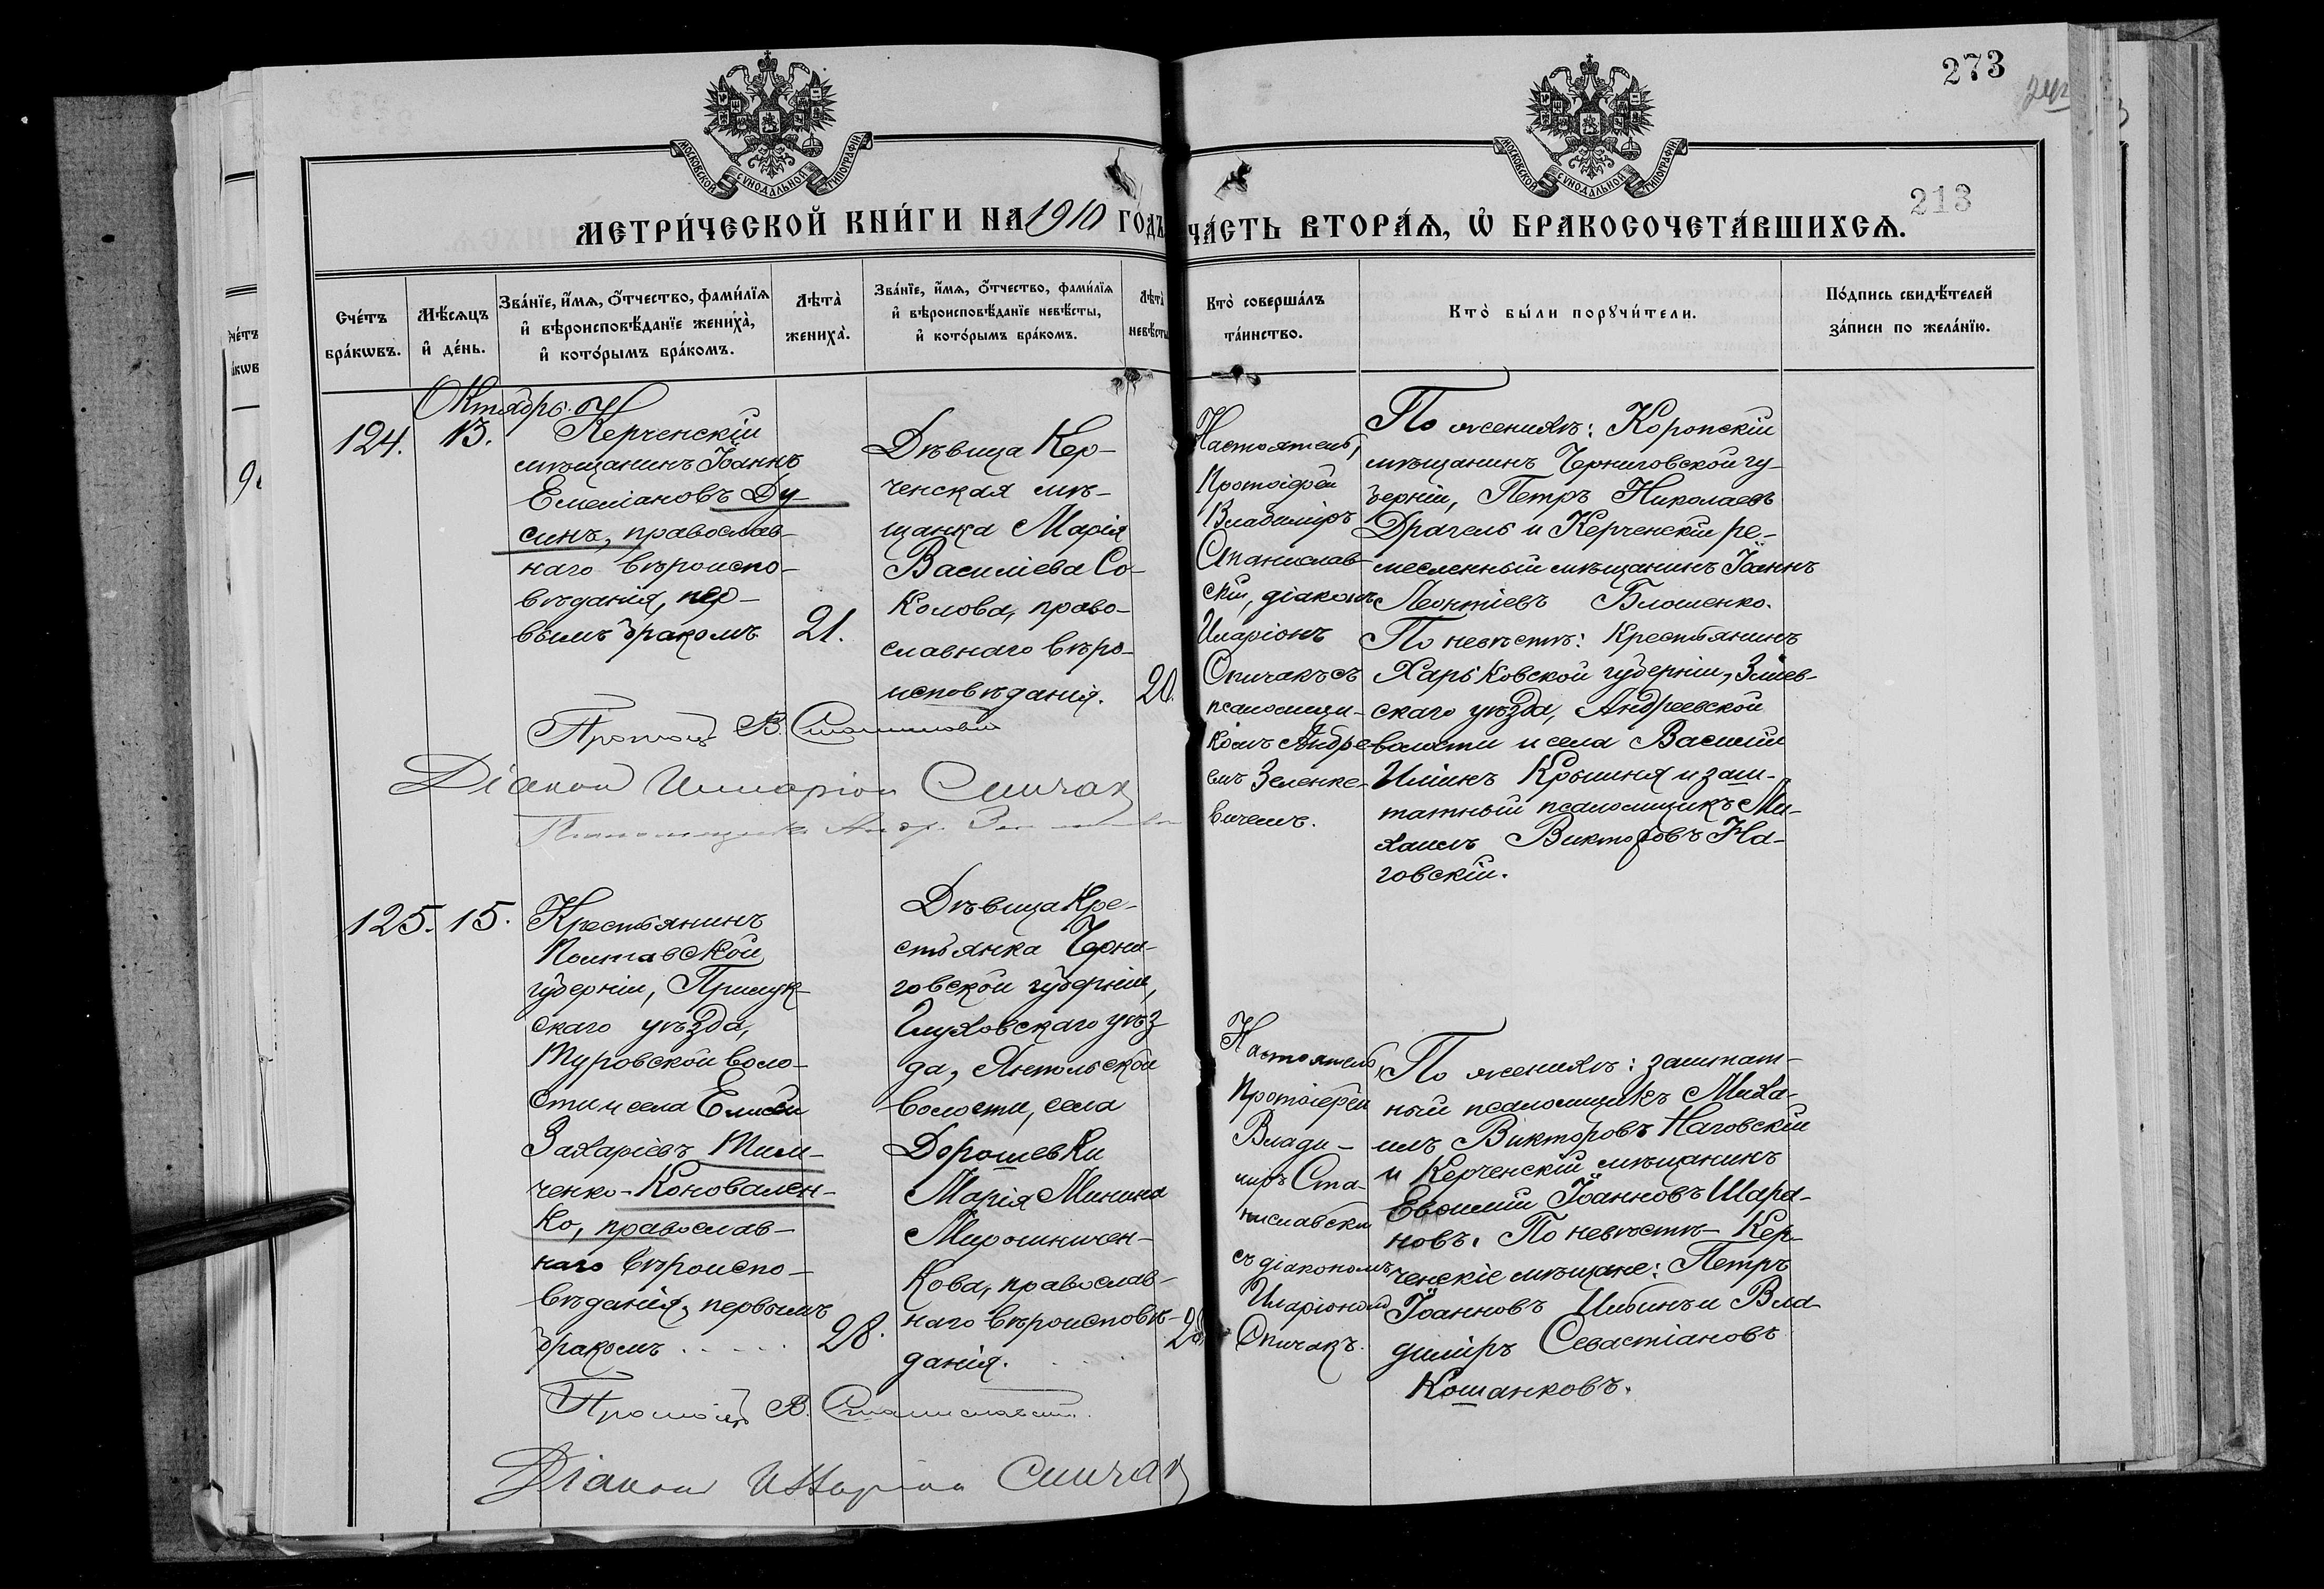 273
213
МОСКОВСКОЙ СѴНОДАЛЬНОЙ ТИПОГРАФІИ
МОСКОВСКОЙ СѴНОДАЛЬНОЙ ТИПОГРАФІИ
МЕТРИ́ЧЕСКОЙ КНИ́ГИ НА 1910 ГО́ДЪ
ЧА́СТЬ ВТОРА́Ѧ, Ѽ БРАКОСОЧЕТА́ВШИХСѦ.
Сче́тъ
бра́кѡвъ.
Мѣ́сѧцъ
и҆ де́нь.
Зва́нїе, и҆́мѧ, ѻ҆́тчество, фами́лїѧ
и҆ вѣроисповѣ́данїе жениха̀,
и҆ кото́рымъ бра́комъ.
Лѣ̀та
жениха̀.
Зва́нїе, и҆́мѧ, ѻ҆́тчество, фами́лїѧ
и҆ вѣроисповѣ́данїе невѣ́сты,
и҆ кото́рымъ бра́комъ.
Лѣта̀
невѣ́сты
Кто̀ соверша́лъ
та́инство.
Кто̀ бы́ли порꙋчи́тели.
По́дпись свидѣ́телей
за́писи по жела́нїю.
Октябрь.
124.
13.
Керченскій
мѣщанинъ Іоаннъ
Емеліановъ Ду-
синъ, православ-
наго вѣроиспо-
вѣданія, пер-
вымъ бракомъ
21.
Дѣвица Кер-
ченская мѣ-
щанка Марія
Василіева Со-
колова, право-
славнаго вѣро-
исповѣданія.
20.
Настоятель,
Протоіерей
Владиміръ
Станислав-
скій, діаконъ
Иларіонъ
Спичакъ съ
псаломщи-
комъ Андре-
емъ Зеленке-
вичемъ.
По женихѣ: Коропскій
мѣщанинъ Черниговской гу-
берніи, Петръ Николаевъ
Драгель и Керченскій ре-
месленный мѣщанинъ Іоаннъ
Леонтіевъ Блошенко.
По невѣстѣ: Крестьянинъ
Харьковской губерніи, Зміев-
скаго уѣзда, Андреевской
волости и села Василій
Ильинъ Крышня и заш-
татный псаломщикъ Ми-
хаилъ Викторовъ На-
говскій.
Протоіер В. Станиславскій
Діаконъ Илларіонъ Спичак
Псаломщикъ Андр.
125.
15.
Крестьянинъ
Полтавской
губерніи, Прилук-
скаго уѣзда,
Туровской воло-
сти и села Елисей
Захаріевъ Тим-
ченко-Коновален-
ко, православ-
наго вѣроиспо-
вѣданія, первымъ
бракомъ . . . . .
28.
Дѣвица Кре-
стьянка Черни-
говской губерніи,
Глуховскаго уѣз-
да, Янпольской
волости, села
Дорошевки
Марія Минина
Мирошничен-
кова, православ-
наго вѣроисповѣ-
данія. . . .
Настоятель,
Протоіерей
Влади-
міръ Ста-
ниславскій
съ діакономъ
Иларіономъ
Спичакъ.
По женихѣ: заштат-
ный псаломщикъ Миха-
илъ Викторовъ Наговскій
и Керченскій мѣщанинъ
Евѳимій Іоанновъ Шара-
новъ. По невѣстѣ - Кер-
ченскіе мѣщане: Петръ
Іоанновъ Шибинъ и Вла-
диміръ Севастіановъ
Кошанковъ.
Протоіер В. Станиславскій.
Діаконъ Илларіонъ Спичак